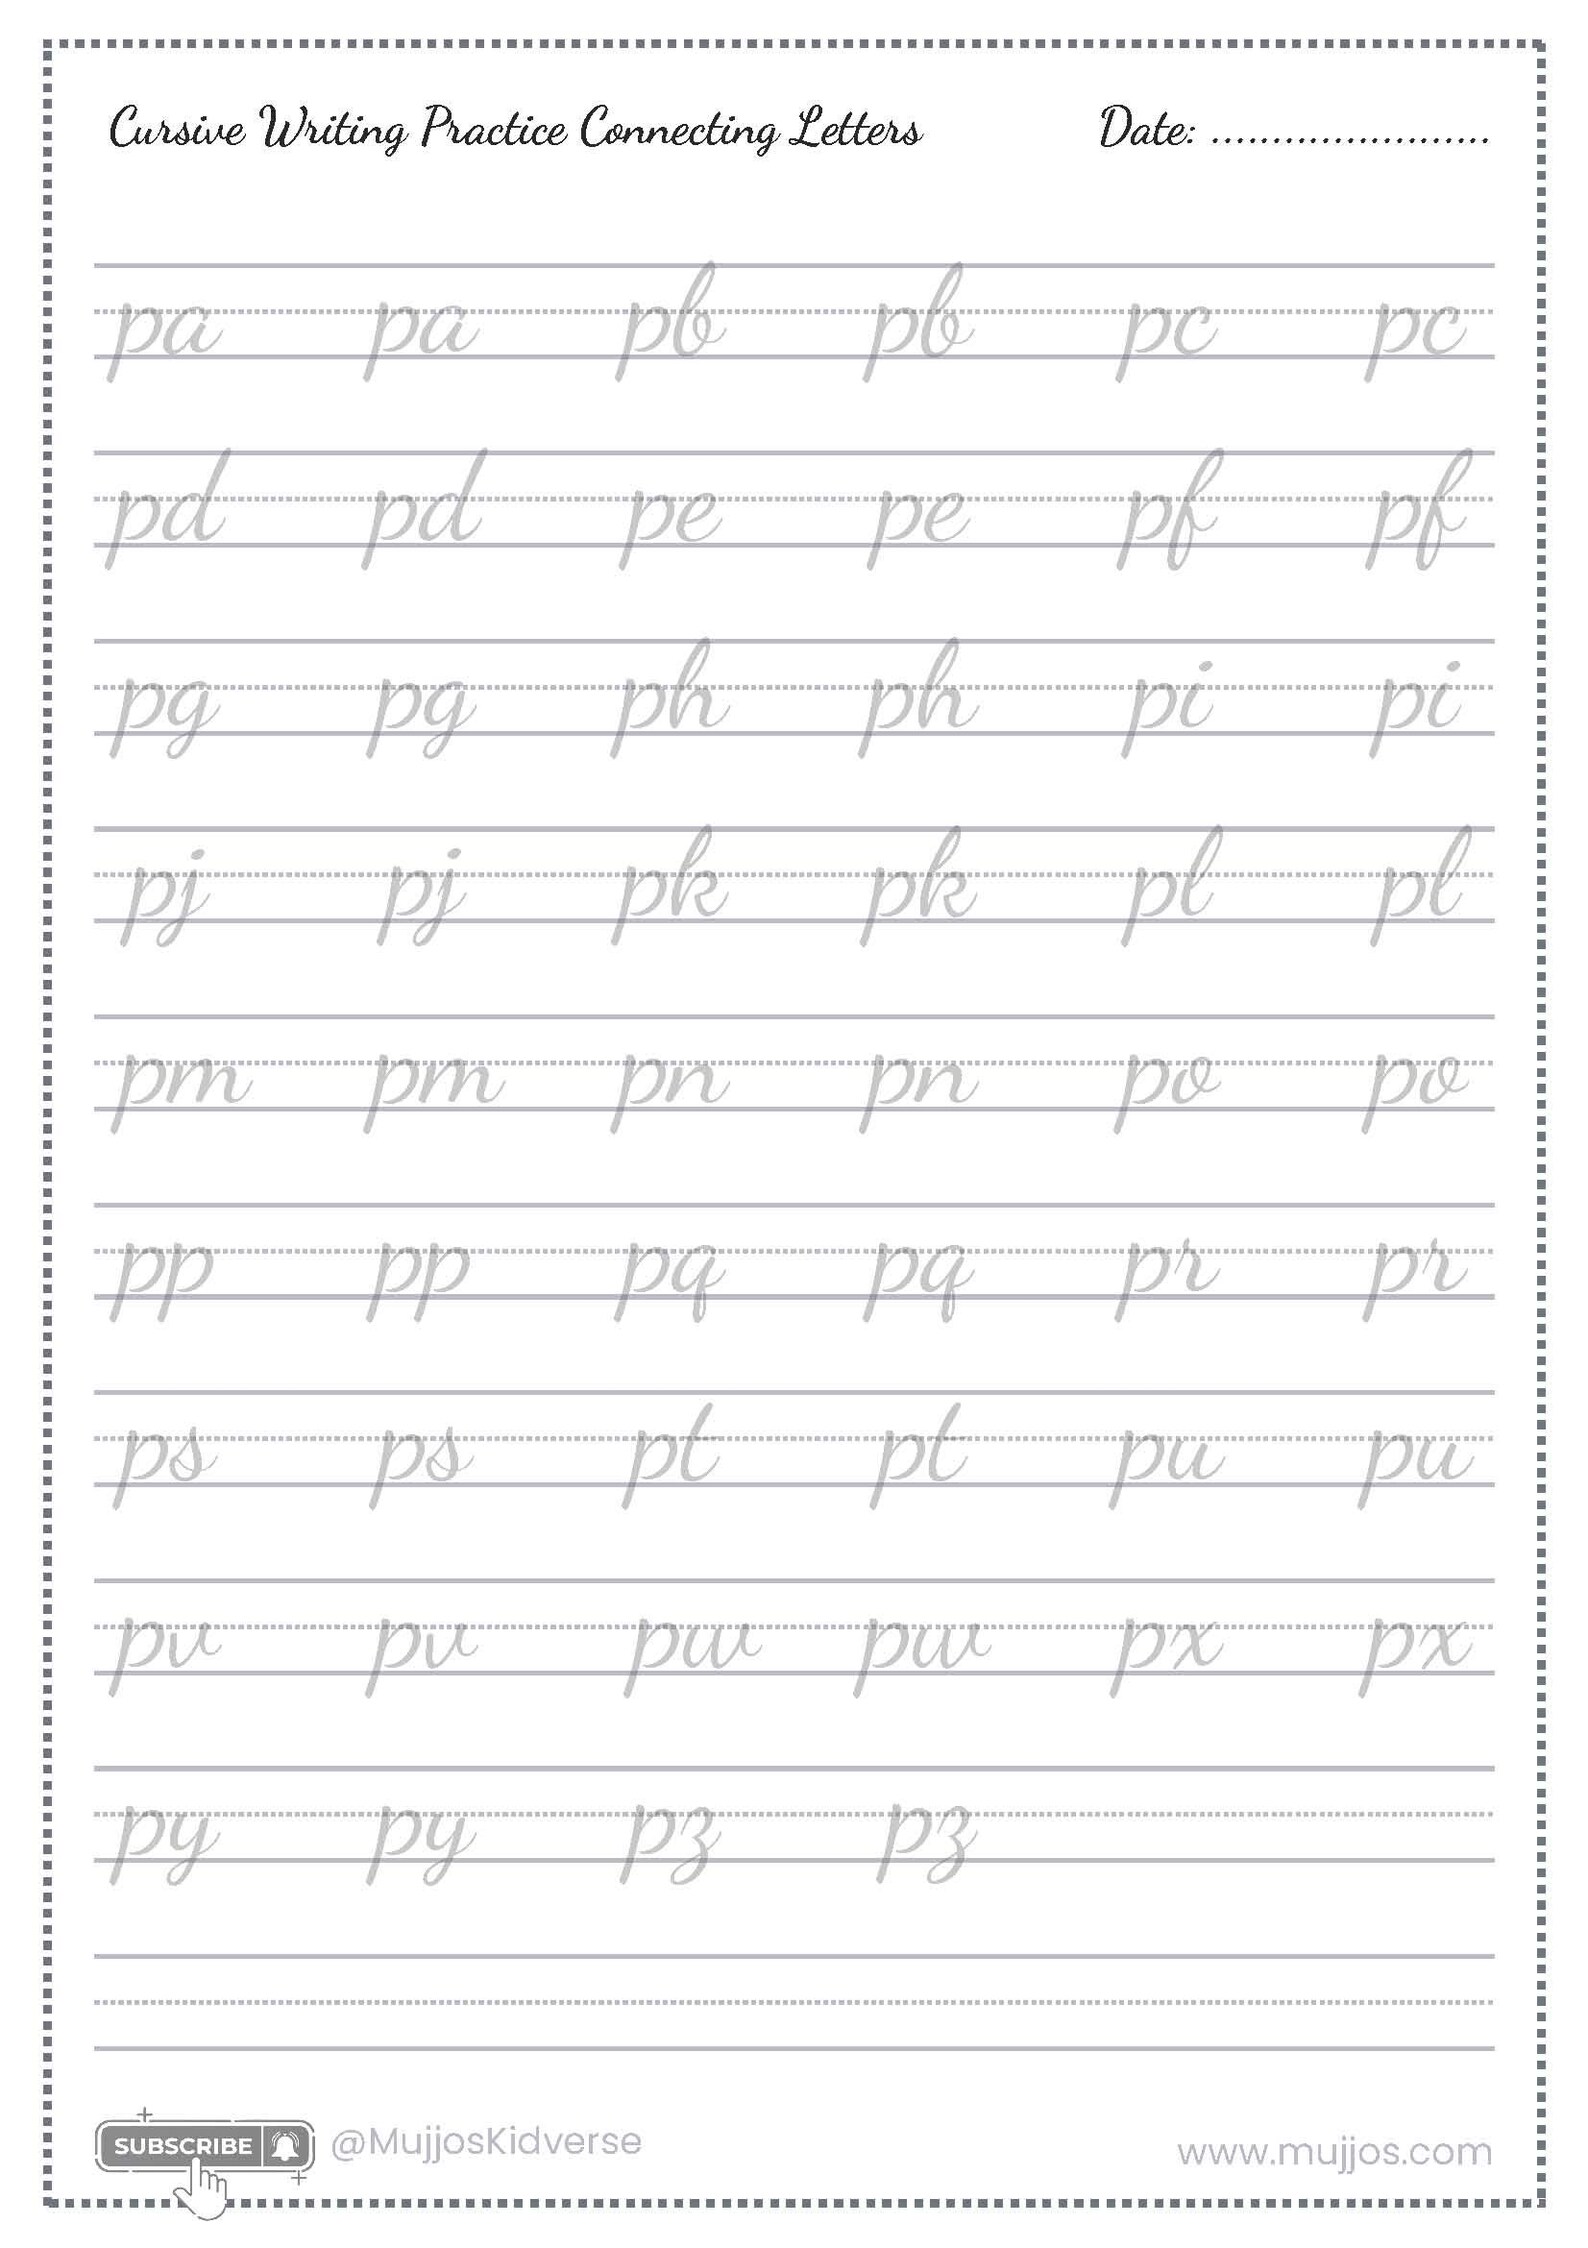 Cursive Writing Practice Connecting Letters Date: .......................
pa pa pb pb pc pc
pd pd pe pe pf pf
pg pg ph ph pi pi
pj pj pk pk pl pl
pm pm pn pn po po
pp pp pq pq pr pr
ps ps pt pt pu pu
pv pv pw pw px px
py py pz pz
SUBSCRIBE @MujjosKidverse www.mujjos.com